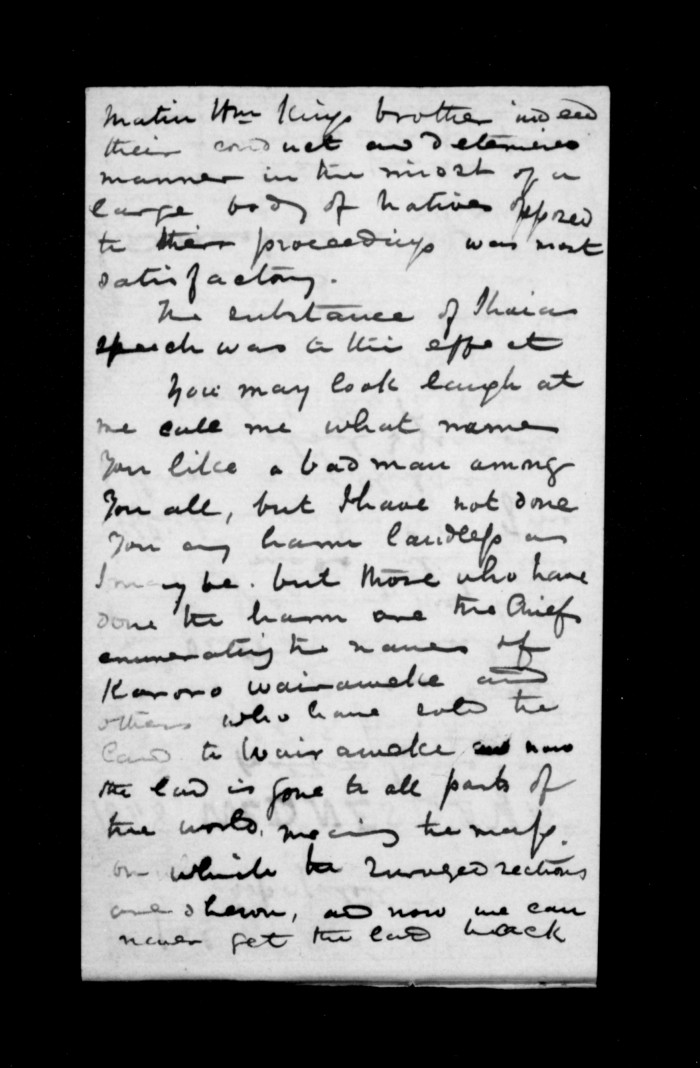 Matiu Wm Kings brother indeed
their conduct and determined
manner in the midst of a
large body of Natives opposed
to their proceedings was most
satisfactory.
The substance of Ihaias
speech was to this effect
You may look laugh at
me call me what name
You like a bad man among
You all, but I have not done
You any harm landless as
I may be. but those who have
done the harm are the Chiefs
enumerating the names of
Kororo wairaweke and
others who have sold the
land to Wairaweke and now
the land is gone to all parts of
the world, meaning the maps.
on which the surveyed sections
are shewn, and now we can
never get the land back